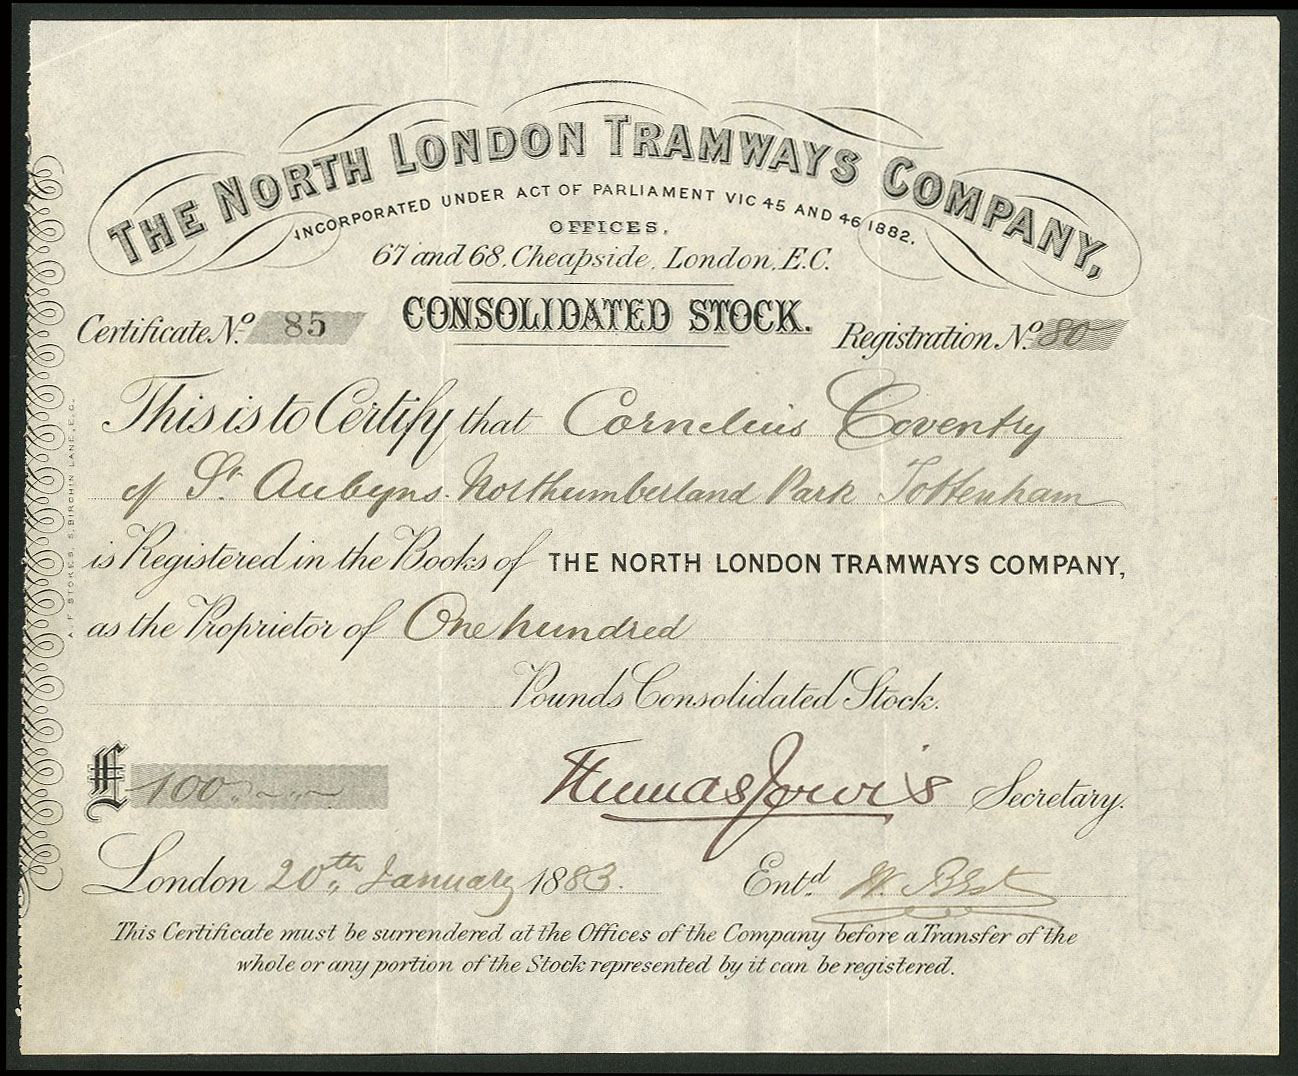 THE NORTH LONDON TRAMWAYS COMPANY,
INCORPORATED UNDER ACT OF PARLIAMENT VIC 45 AND 46 1882.
OFFICES,
67 and 68, Cheapside, London, E.C.
CONSOLIDATED STOCK.
Certificate No. 85
Registration No. 80
This is to Certify that Cornelius Coventry
of St. Aubyns. Northumberland Park Tottenham
is Registered in the Books of THE NORTH LONDON TRAMWAYS COMPANY,
as the Proprietor of One hundred
Pounds Consolidated Stock.
£ 100
Thomas Jarvis Secretary.
London 20th January 1883.
Entd. W.
This Certificate must be surrendered at the Offices of the Company before a Transfer of the
whole or any portion of the Stock represented by it can be registered.
A. F. STOKES, 5, BIRCHIN LANE, E.C.